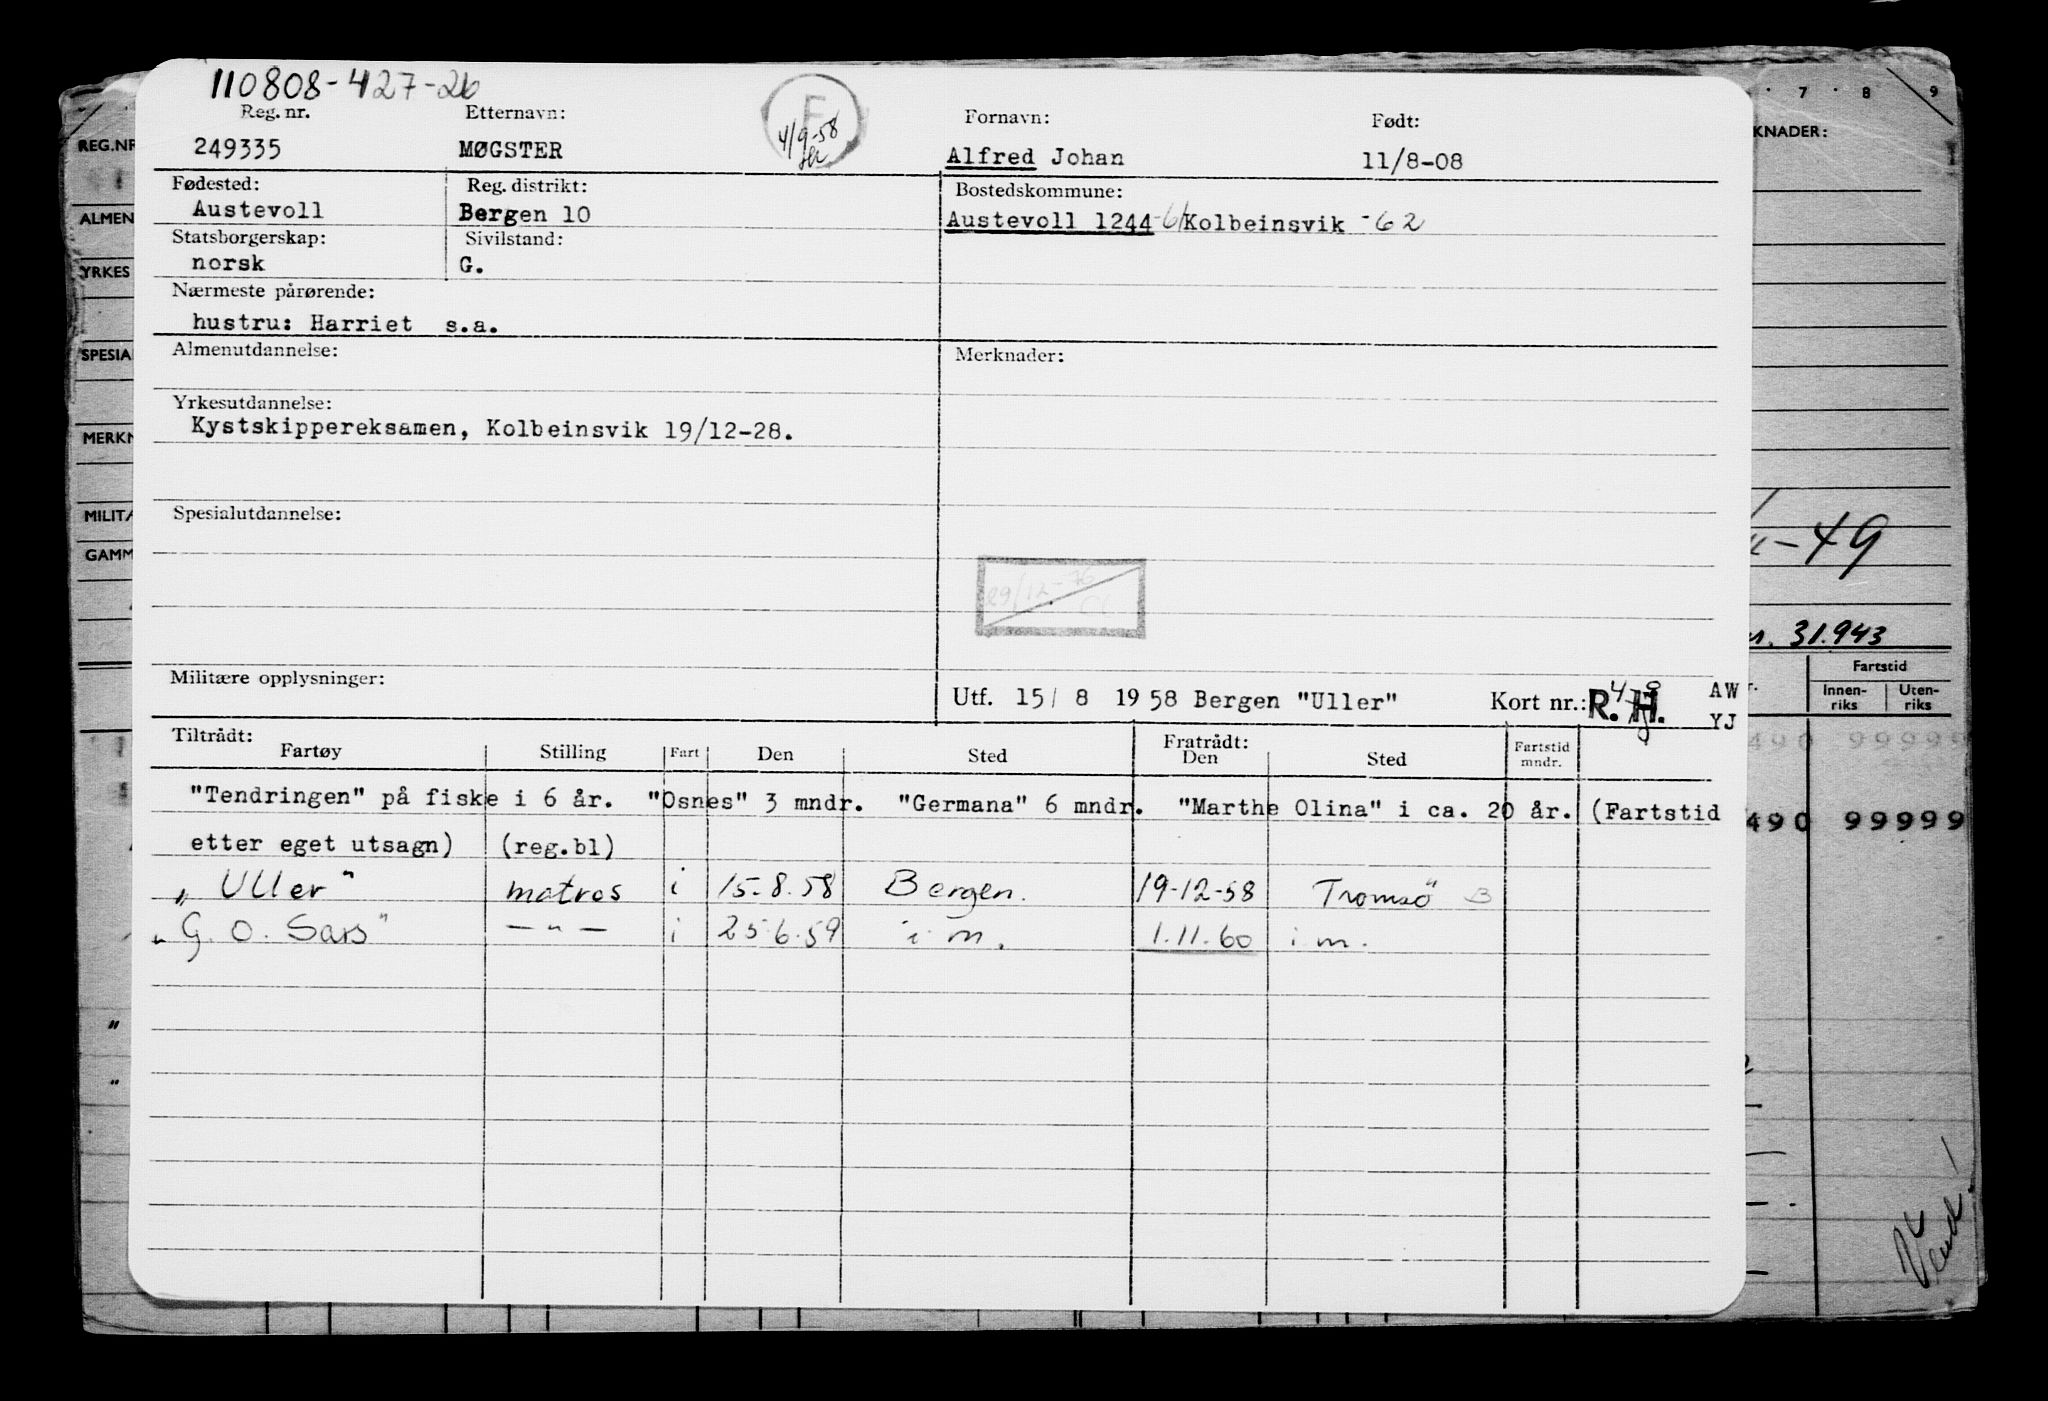 110808-427-26
Reg. nr. Etternavn: Fornavn: Født:
249335 MØGSTER 4/9-58 Alfred Johan 11/8-08
Fødested: Reg. distrikt: Bostedskommune:
Austevoll Bergen 10 Austevoll 1244-61 Kolbeinsvik -62
Statsborgerskap: Sivilstand:
norsk G.
Nærmeste pårørende:
hustru: Harriet s.a.
Almenutdannelse: Merknader:
Yrkesutdannelse:
Kystskippereksamen, Kolbeinsvik 19/12-28.
Spesialutdannelse:
29/12-76
Militære opplysninger: Utf. 15/ 8 1958 Bergen "Uller" Kort nr.: R. H.
Tiltrådt: Fratrådt:
Fartøy Stilling Fart Den Sted Den Sted Fartstid mndr.
"Tendringen" på fiske i 6 år. "Osnes" 3 mndr. "Germana" 6 mndr. "Marthe Olina" i ca. 20 år. (Fartstid
etter eget utsagn) (reg.bl)
"Uller" matros i 15-8-58 Bergen. 19-12-58 Tromsö B
"G. O. Sars" — " — i 25-6-59 i m. 1.11.60 i m.
REG.NR
ALMEN
YRKES
SPESIA
MERKN
MILITÆ
GAMM
"
"
7 8 9
KNADER:
-49
31.943
AW
YJ
Fartstid
Innen-riks Uten-riks
490 99999
490 99999
Vend!